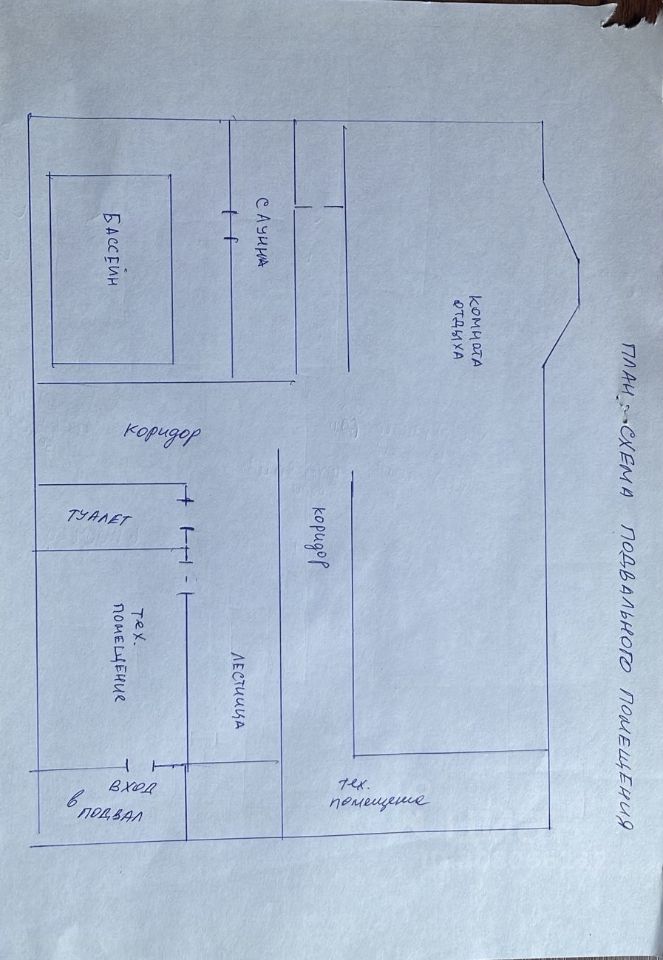 ПЛАН-СХЕМА ПОДВАЛЬНОГО ПОМЕЩЕНИЯ
КОМНАТА
ОТДЫХА
САУННА
БАССЕЙН
коридор
коридор
ТУАЛЕТ
тех.
ПОМЕЩЕНИЕ
ЛЕСТНИЦА
тех.
помещение
ВХОД
в
ПОДВАЛ